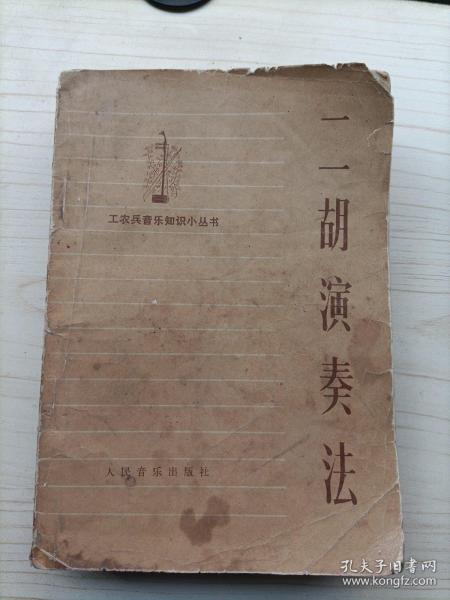 二胡演奏法
工农兵音乐知识小丛书
人民音乐出版社
孔夫子旧书网
www.kongfz.com